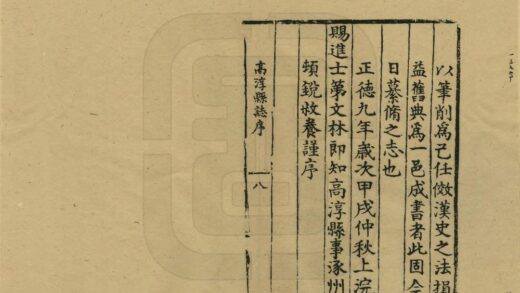 以筆削爲己任倣漢史之法損
益舊典爲一邑成書者此固今
日纂脩之志也
正德九年歲次甲戌仲秋上浣
賜進士第文林郎知高淳縣事涿州
頓銳敘養謹序
高淳縣誌序
八